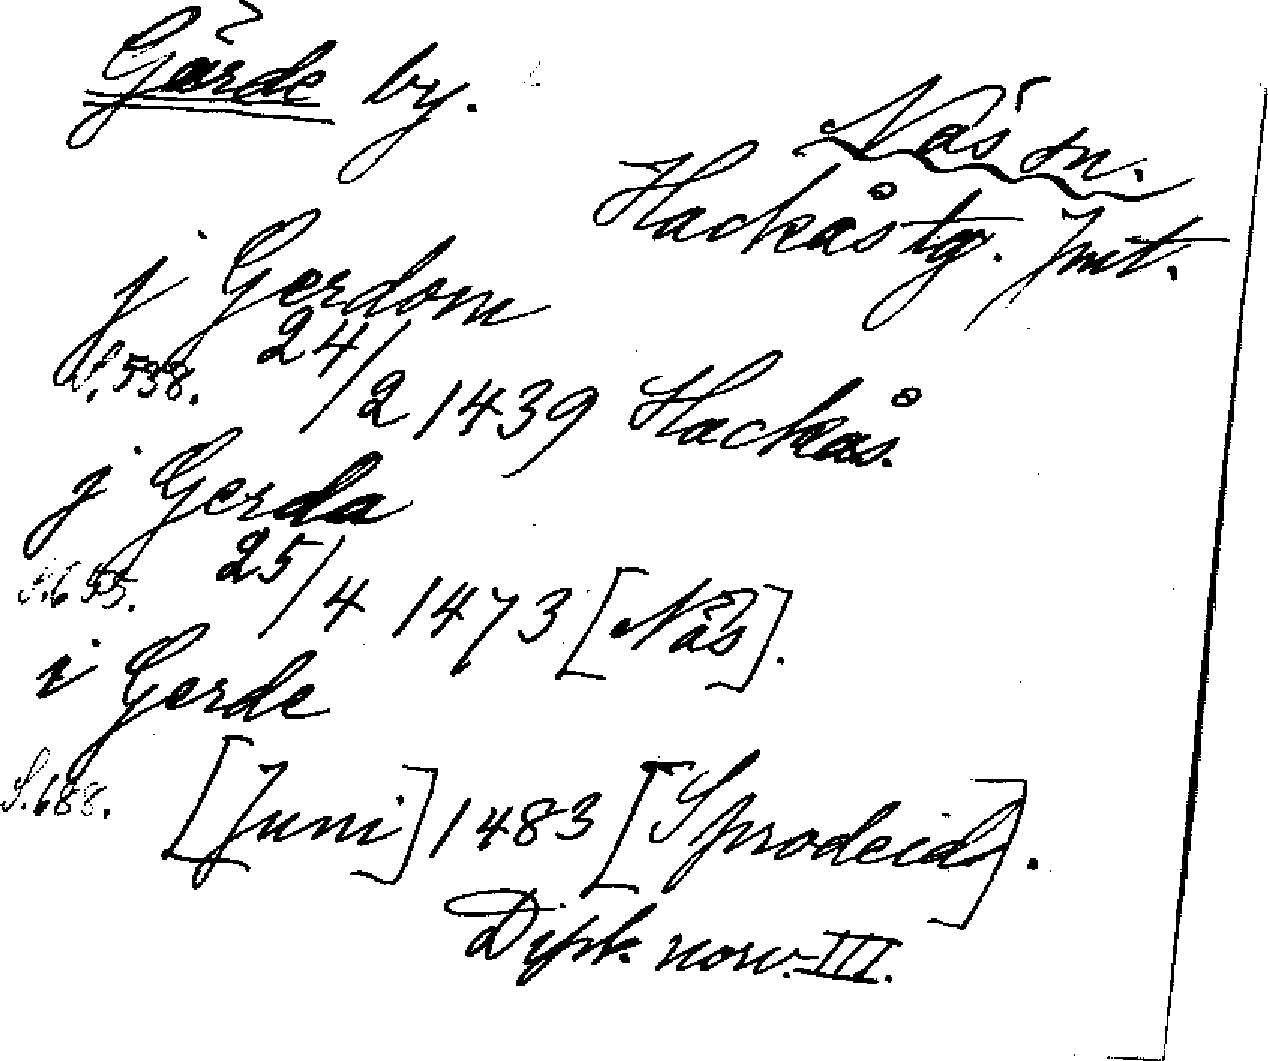 Gärde by.
Näs sn.
Hackås tg. Jmt.
j Gerdom
S. 538. 24/2 1439 Hackås.
j Gerda
S. 655. 25/4 1473 [Näs].
i Gerde
S. 688. [Juni] 1483 [Sprodeid].
Dipl. norv. III.